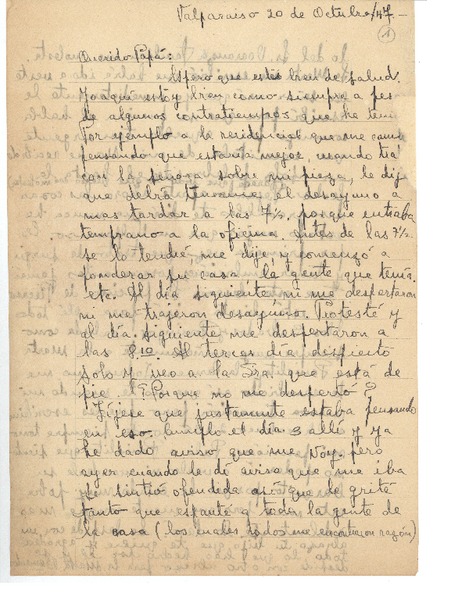 Valparaiso 20 de Octubre/47-
1
Querido Papá:
Espero que estés bien de salud.
Yo aquí estoy bien como siempre a pesar
de algunos contratiempos que he tenido
Por ejemplo a la residencial que me cambié
pensando que estaría mejor, cuando traté
con la señora sobre mi pieza, le dije
que debía tenerme el desayuno a
mas tardar a las 7½ porque entraba
temprano a la oficina. Antes de las 7½
se lo tendré, me dijo y comenzó a
ponderar su casa la gente que tenía
etc. Al día siguiente ni me despertaron
ni me trajeron desayuno. Protesté y
al día siguiente me despertaron a
las 8.10 Al tercer día despierto
solo y veo a la Sra. que está de
pie. ¿Porque no me despertó?
Fíjese que justamente estaba pensando
en eso. Cumplo el día 3 allí y ya
he dado aviso que me voy. Pero
ayer cuando le di aviso que me iba
se sintió ofendida así que le grité
tanto que espanté a toda la gente de
la casa (los cuales todos me encontraron razón)